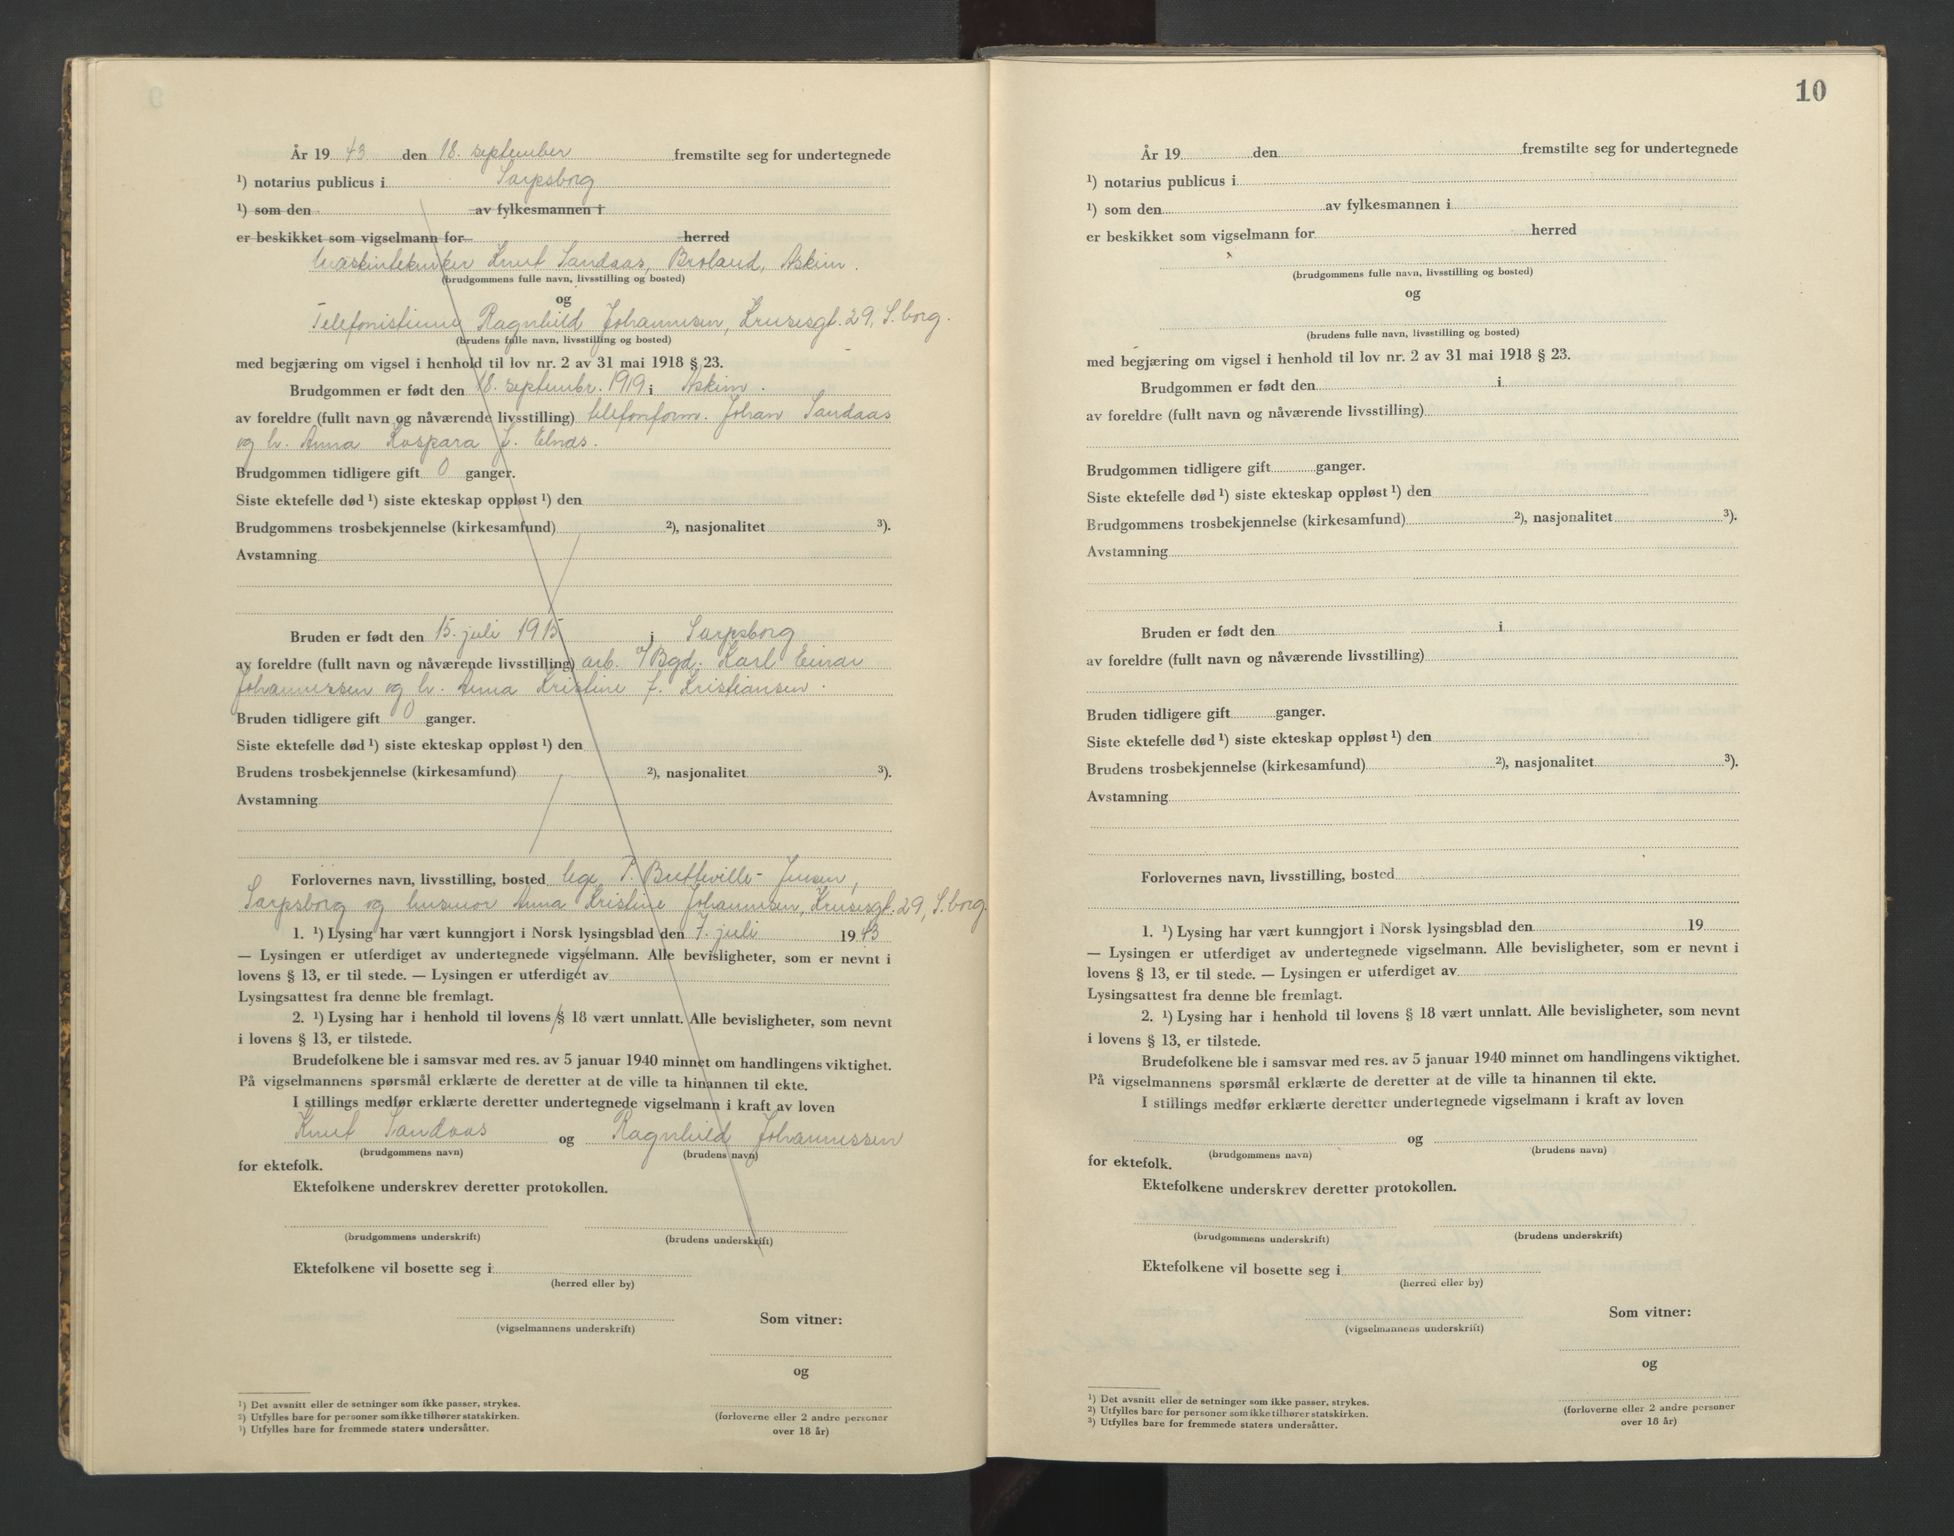 År 19 43 den 18. september fremstilte seg for undertegnede
¹) notarius publicus i Sarpsborg
¹) som den av fylkesmannen i
er beskikket som vigselmann for herred
Maskintekniker Knut Sandaas, Broland, Askim.
(brudgommens fulle navn, livsstilling og bosted)
og
Telefonistinne Ragnhild Johannesen, Krusesgt. 29, S.borg.
(brudens fulle navn, livsstilling og bosted)
med begjæring om vigsel i henhold til lov nr. 2 av 31 mai 1918 § 23.
Brudgommen er født den 18. septembr. 1919 i Askim.
av foreldre (fullt navn og nåværende livsstilling) telefonform. Johan Sandaas
og h. Anna Kaspara f. Elnæs.
Brudgommen tidligere gift 0 ganger.
Siste ektefelle død ¹) siste ekteskap oppløst ¹) den
Brudgommens trosbekjennelse (kirkesamfund) ²), nasjonalitet ³).
Avstamning
Bruden er født den 15. juli 1915 i Sarpsborg
av foreldre (fullt navn og nåværende livsstilling) arb. v/Bgd. Karl Einar
Johannessen og h. Anna Kristine f. Kristiansen.
Bruden tidligere gift 0 ganger.
Siste ektefelle død ¹) siste ekteskap oppløst ¹) den
Brudens trosbekjennelse (kirkesamfund) ²), nasjonalitet ³).
Avstamning
Forlovernes navn, livsstilling, bosted lege P. Butteville-Jensen,
Sarpsborg og husmor Anna Kristine Johannesen, Krusesgt. 29, S.borg.
1. ¹) Lysing har vært kunngjort i Norsk lysingsblad den 7. juli 1943
— Lysingen er utferdiget av undertegnede vigselmann. Alle bevisligheter, som er nevnt i
lovens § 13, er til stede. — Lysingen er utferdiget av
Lysingsattest fra denne ble fremlagt.
2. ¹) Lysing har i henhold til lovens § 18 vært unnlatt. Alle bevisligheter, som nevnt
i lovens § 13, er tilstede.
Brudefolkene ble i samsvar med res. av 5 januar 1940 minnet om handlingens viktighet.
På vigselmannens spørsmål erklærte de deretter at de ville ta hinannen til ekte.
I stillings medfør erklærte deretter undertegnede vigselmann i kraft av loven
Knut Sandaas og Ragnhild Johannessen
(brudgommens navn) (brudens navn)
for ektefolk.
Ektefolkene underskrev deretter protokollen.
(brudgommens underskrift) (brudens underskrift)
Ektefolkene vil bosette seg i
(herred eller by)
Som vitner:
(vigselmannens underskrift)
og
¹) Det avsnitt eller de setninger som ikke passer, strykes.
²) Utfylles bare for personer som ikke tilhører statskirken.
³) Utfylles bare for fremmede staters undersåtter.
(forloverne eller 2 andre personer
over 18 år)
10
År 19 den fremstilte seg for undertegnede
¹) notarius publicus i
¹) som den av fylkesmannen i
er beskikket som vigselmann for herred
(brudgommens fulle navn, livsstilling og bosted)
og
(brudens fulle navn, livsstilling og bosted)
med begjæring om vigsel i henhold til lov nr. 2 av 31 mai 1918 § 23.
Brudgommen er født den i
av foreldre (fullt navn og nåværende livsstilling)
Brudgommen tidligere gift ganger.
Siste ektefelle død ¹) siste ekteskap oppløst ¹) den
Brudgommens trosbekjennelse (kirkesamfund) ²), nasjonalitet ³).
Avstamning
Bruden er født den i
av foreldre (fullt navn og nåværende livsstilling)
Bruden tidligere gift ganger.
Siste ektefelle død ¹) siste ekteskap oppløst ¹) den
Brudens trosbekjennelse (kirkesamfund) ²), nasjonalitet ³).
Avstamning
Forlovernes navn, livsstilling, bosted
1. ¹) Lysing har vært kunngjort i Norsk lysingsblad den 19
— Lysingen er utferdiget av undertegnede vigselmann. Alle bevisligheter, som er nevnt i
lovens § 13, er til stede. — Lysingen er utferdiget av
Lysingsattest fra denne ble fremlagt.
2. ¹) Lysing har i henhold til lovens § 18 vært unnlatt. Alle bevisligheter, som nevnt
i lovens § 13, er tilstede.
Brudefolkene ble i samsvar med res. av 5 januar 1940 minnet om handlingens viktighet.
På vigselmannens spørsmål erklærte de deretter at de ville ta hinannen til ekte.
I stillings medfør erklærte deretter undertegnede vigselmann i kraft av loven
og
(brudgommens navn) (brudens navn)
for ektefolk.
Ektefolkene underskrev deretter protokollen.
(brudgommens underskrift) (brudens underskrift)
Ektefolkene vil bosette seg i
(herred eller by)
Som vitner:
(vigselmannens underskrift)
og
¹) Det avsnitt eller de setninger som ikke passer, strykes.
²) Utfylles bare for personer som ikke tilhører statskirken.
³) Utfylles bare for fremmede staters undersåtter.
(forloverne eller 2 andre personer
over 18 år)